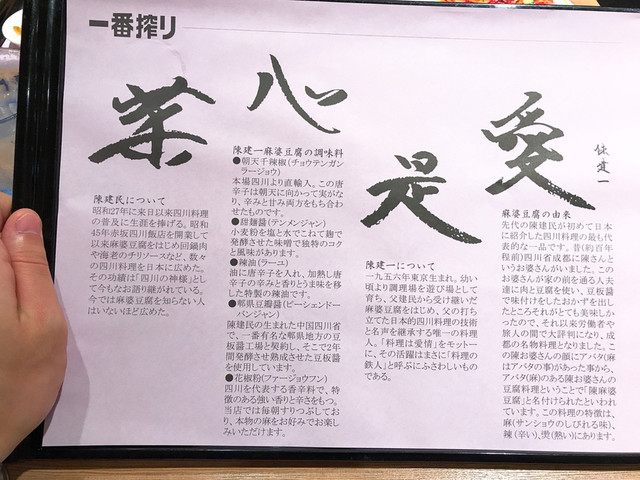 一番搾り
愛
是
心
菜
建一
麻婆豆腐の由来
先代の陳建民が初めて日本
に紹介した四川料理の最も代
表的な一品です。昔(約百年
程前)四川省成都に陳さんと
いうお婆さんがいました。この
お婆さんが家の前を通る人夫
達に肉と豆腐を使い、豆板醤
で味付けをしたおかずを出し
たところそれがとても美味しか
ったので、それ以来労働者や
旅人の間で大評判になり、成
都の名物料理となりました。こ
の陳お婆さんの顔にアバタ(麻
はアバタの事)があった事から、
アバタ(麻)のある陳お婆さんの
豆腐料理ということで「陳麻婆
豆腐」と名付けられたといわれ
ています。この料理の特徴は、
麻(サンショウのしびれる味)、
辣(辛い)、烫(熱い)にあります。
陳建一について
一九五六年東京生まれ。幼い
頃より調理場を遊び場として
育ち、父建民から受け継いだ
麻婆豆腐をはじめ、父の打ち
立てた日本的四川料理の技術
と名声を継承する唯一の料理
人。「料理は愛情」をモットー
に、その活躍はまさに「料理の
鉄人」と呼ぶにふさわしいもの
である。
陳建一麻婆豆腐の調味料
●朝天干辣椒(チョウテンガン
ラージョウ)
本場四川より直輸入。この唐
辛子は朝天に向かって実がな
り、辛みと甘み両方をもち合わ
せたものです。
●甜麺醤(テンメンジャン)
小麦粉を塩と水でこねて麹で
発酵させた味噌で独特のコク
と風味があります。
●辣油(ラーユ)
油に唐辛子を入れ、加熱し唐
辛子の辛みと香りとうま味を移
した特製の辣油です。
●郫県豆瓣醤(ピーシェンドー
バンジャン)
陳建民の生まれた中国四川省
で、一番有名な郫県地方の豆
板醤工場と契約し、そこで2年
間発酵させ熟成させた豆板醤
を使用しています。
●花椒粉(ファージョウフン)
四川を代表する香辛料で、特
徴のある強い香りと辛さをもつ。
当店では毎朝すりつぶしてお
り、本物の麻をお好みでお楽し
みいただけます。
陳建民について
昭和27年に来日以来四川料理
の普及に生涯を捧げる。昭和
45年赤坂四川飯店を開業して
以来麻婆豆腐をはじめ回鍋肉
や海老のチリソースなど、数々
の四川料理を日本に広めた。
その功績は「四川の神様」とし
て今もなお語り継がれていて、
今では麻婆豆腐を知らない人
はいないほど広めた。